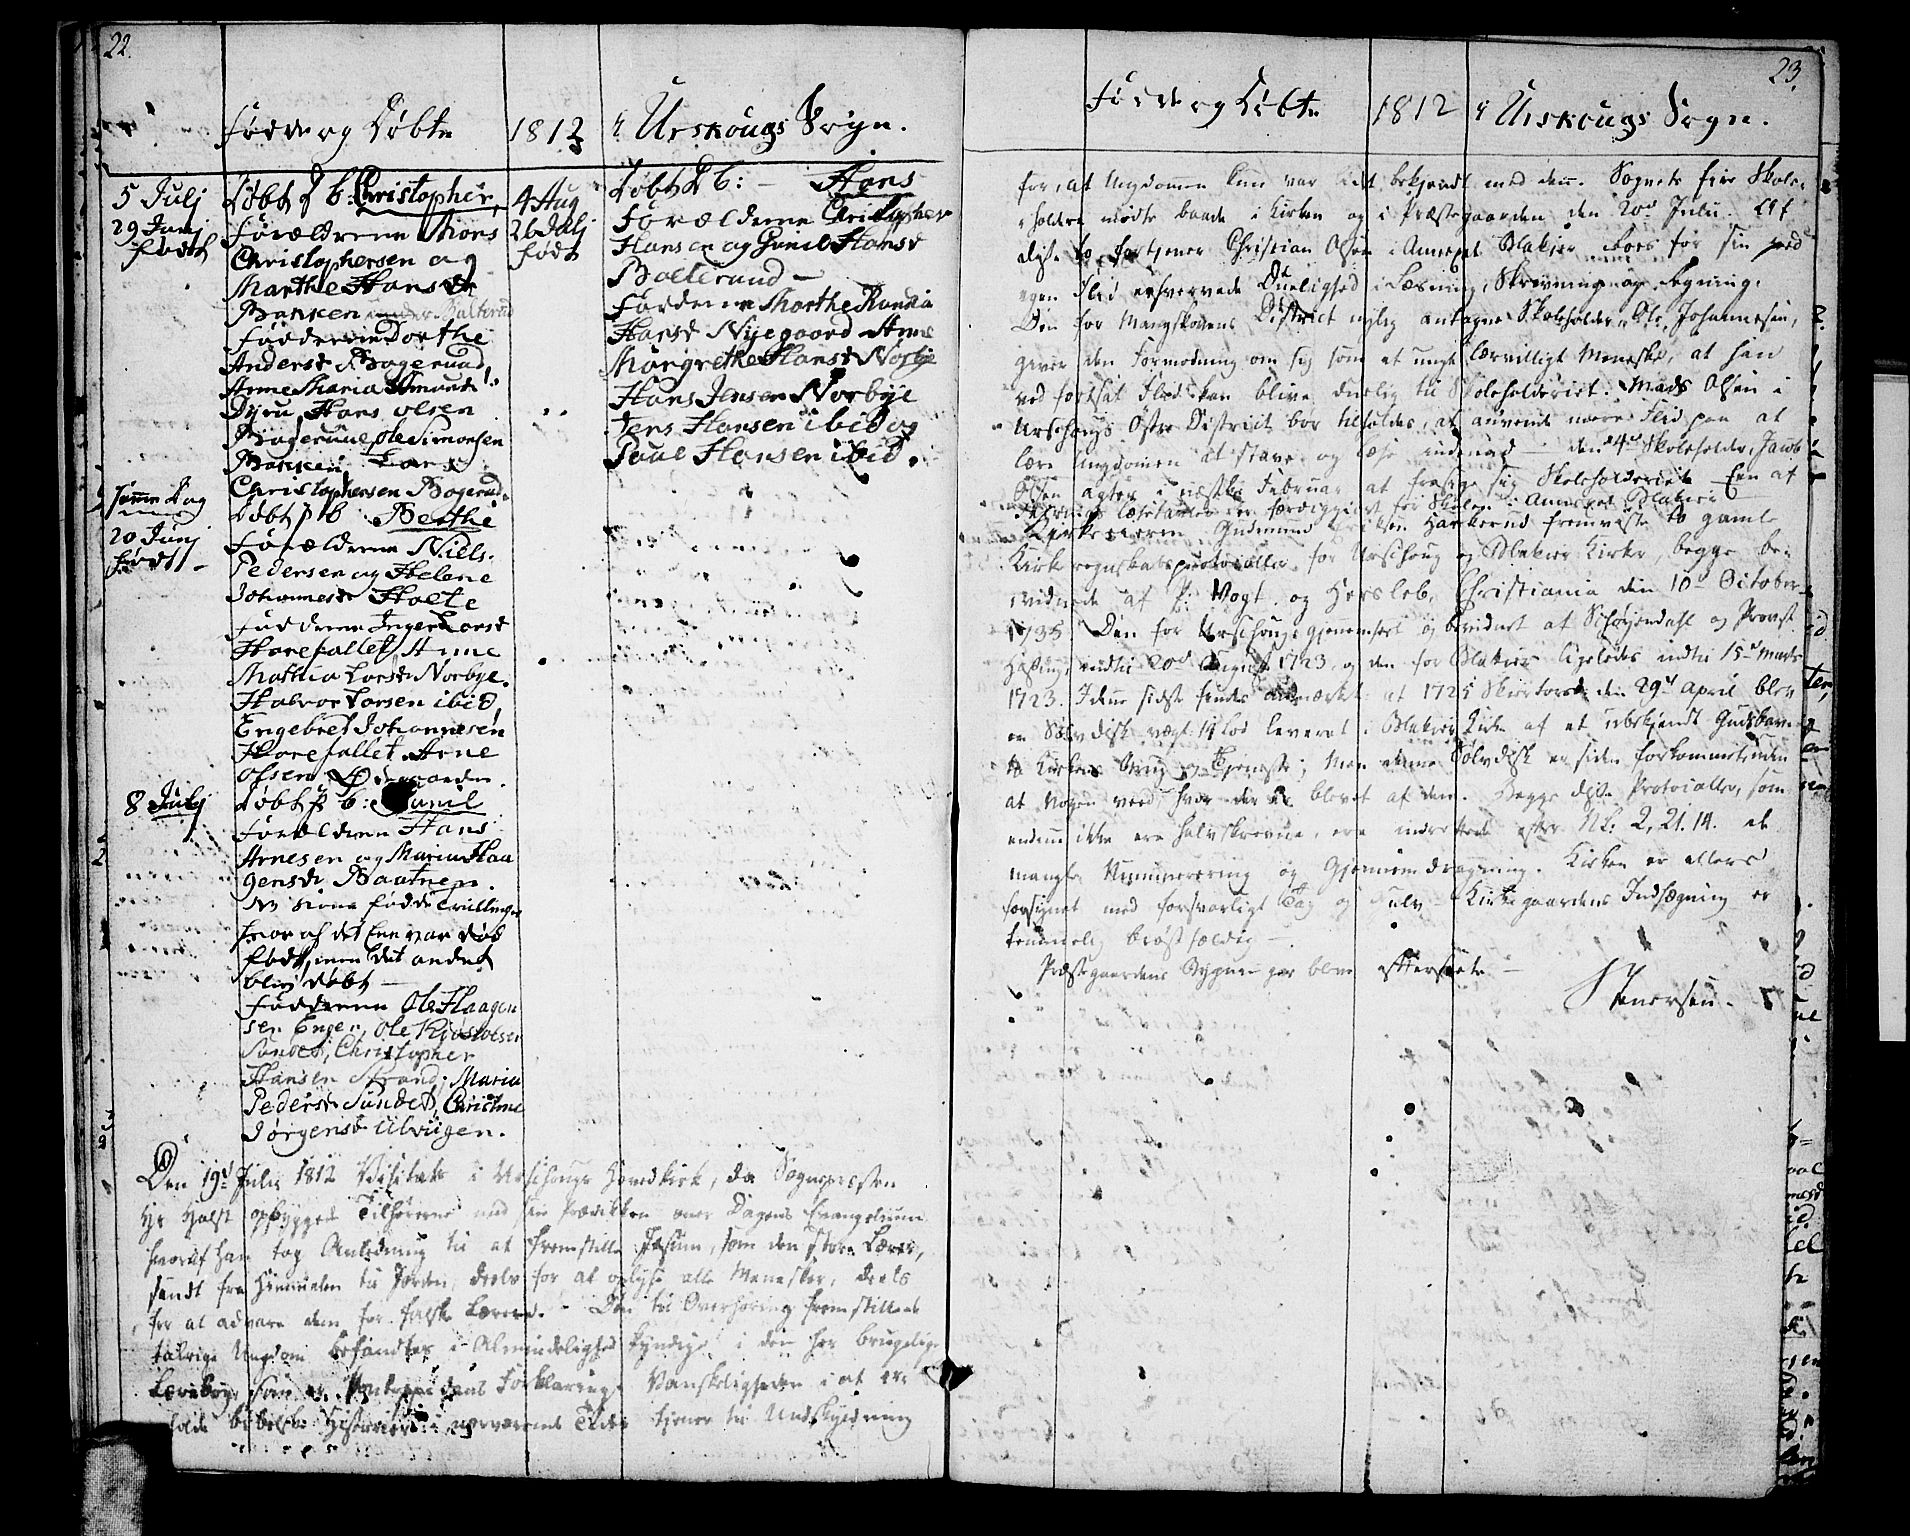 22
Fødde og Døbte 1812 i Urskougs Sogn.
5 Julj
29 Junj
født
Døbt D b: Christopher,
Forældrene Mons
Christophersen og
Marthe Hansdr
Bakken under Bolterud
Fadderne Dorthe
Andersdr Bogerud
Anne Maria Amunds
Dyru Hans olsen
Bogerud ole Simonsen
Bakken Lars
Christophersen Bogerud
samme Dag
20 Junj
født
Døbt P b Berthe
Forældrene Niels
Pedersen og Helene
Johannesdr Holte
Fadderne Inger Larsdr
Harefallet Anne
Mathia Larsdr Norbye.
Halvor Larsen ibid,
Engebret Johannesen
Harefallet Arne
Olsen
8 Julj
Døbt P b: Gunil
Forældrene Hans
Arnesen og Maria Haa
gensdr Baatnen.
fødde Trillinger
hvor af det Ene var død
født, men det andet
blev døbt
Fadderne Ole Haagen
sen Engen, Ole Kjøstolsen
Sundet, Christopher
Hansen Strand, Maria
Pedersdr Sundet, Christine
Jørgensdr Ulviigen.
4 Aug
26 Julj
født
Døbt D b: - Hans
Forældrene Christopher
Hansen og Gunil Hansdr
Bolterud -
Fadderne Marthe
Hansdr Nyegaard Anne
Margrethe Hansdr Norbye
Hans Jensen Norbye
Jens Hansen ibid og
Poul Hansen ibid.
Den 19d Julii 1812 Visitats i Urschougs Hovedkirke, da Sognepresten
Hr Holst opbyggede Tilhørerne med sin Prædiken over Dagens Evangelium
hvoraf han tog Anledning til at fremstille Jesum, som den store Lærer,
sendt fra Himmelen til Jorden, deels for at oplyse alle Mennesker, deels
for at advare dem for falske Lærere. - Den til Overhøring fremstillede
talrige Ungdom befandtes i Almindelighed kyndige i den her brugelige
Lærebog, som er Pontoppidans Forklaring. Vanskeligheden i at er-
holde bibelske Historier i nærværende Tider tjener til Undskyldning
23.
Fødde og Døbte 1812 i Urskougs Sogn.
for, at Ungdommen kun var lidt bekjendt med dem. Sognets fire Skole-
holdere mødte baade i Kirken og i Præstegaarden den 20d Julii. Af
disse fortjener Christian Olsen i Annexet Blakier Roes for sin ved
egen Flid erhvervede Duelighed i Læsning, Skrivning og Regning.
Den for Mangskovens District nylig antagne Skoleholder, Ole Johannesen,
giver den Formodning om sig som et ungt lærvilligt Menneske, at han
ved fortsat Flid kan blive duelig til Skoleholderiet. Mads Olsen i
Urschougs Østre District bør tilholdes, at anvende meere Flid paa at
lære Ungdommen at stave og læse indenad - den 4d Skoleholder, Jacob
Olsen agter i næste Februar at frasige sig Skoleholderiet. Een af
færdiggjort for Skolen i Annexet Blakier
Kirkeværen Gudmund Eriksen Harkerud fremviste to gamle
Kirke regnskabsprotocoller for Urschoug og Blakier Kirker, begge be-
vidnede af P: Vogt og Hersleb, Christiania den 10d October
1735. Den for Urschougs gjennemseet og bevidnet af Schøyendahl og Provst
indtil 20d August 1723, og den for Blakier ligeledes indtil 15d Marts
1723. I denne sidste findes anmærket at 1725 Skiertorsd. den 29d April blev
en Sølvdisk vægt 14 Lod leveret i Blakier Kirke af et ubekjendt Gudsbarn
til Kirkens Brug og Tjeneste; Men denne Sølvdisk er siden forkommet, uden
at Nogen veed, hvor der er blevet af den. Begge disse Protocoller, som
endnu ikke ere halvskrevne, ere indrettede efter NL: 2, 21. 14. de
mangle Numerering og Gjennemdragning. Kirken er ellers
forsynet med forsvarligt Tag og Gulv. Kirkegaardens Indhægning er
temmelig brøstfældig -
Præstegaardens Bygninger blev efterseete -